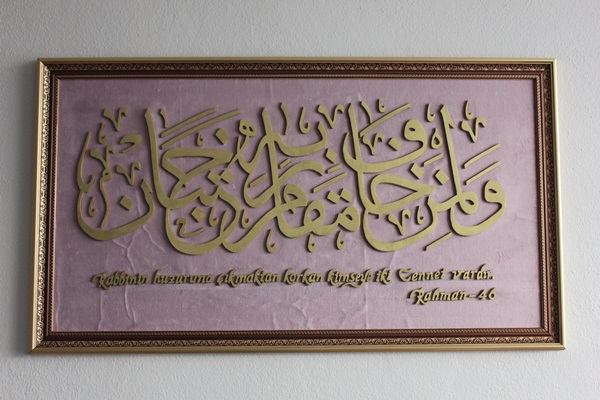 وَلِمَنْ خَافَ مَقَامَ رَبِّهِ جَنَّتَانِ
Rabbinin huzuruna çıkmaktan korkan kimseye iki Cennet vardır.
Rahman-46